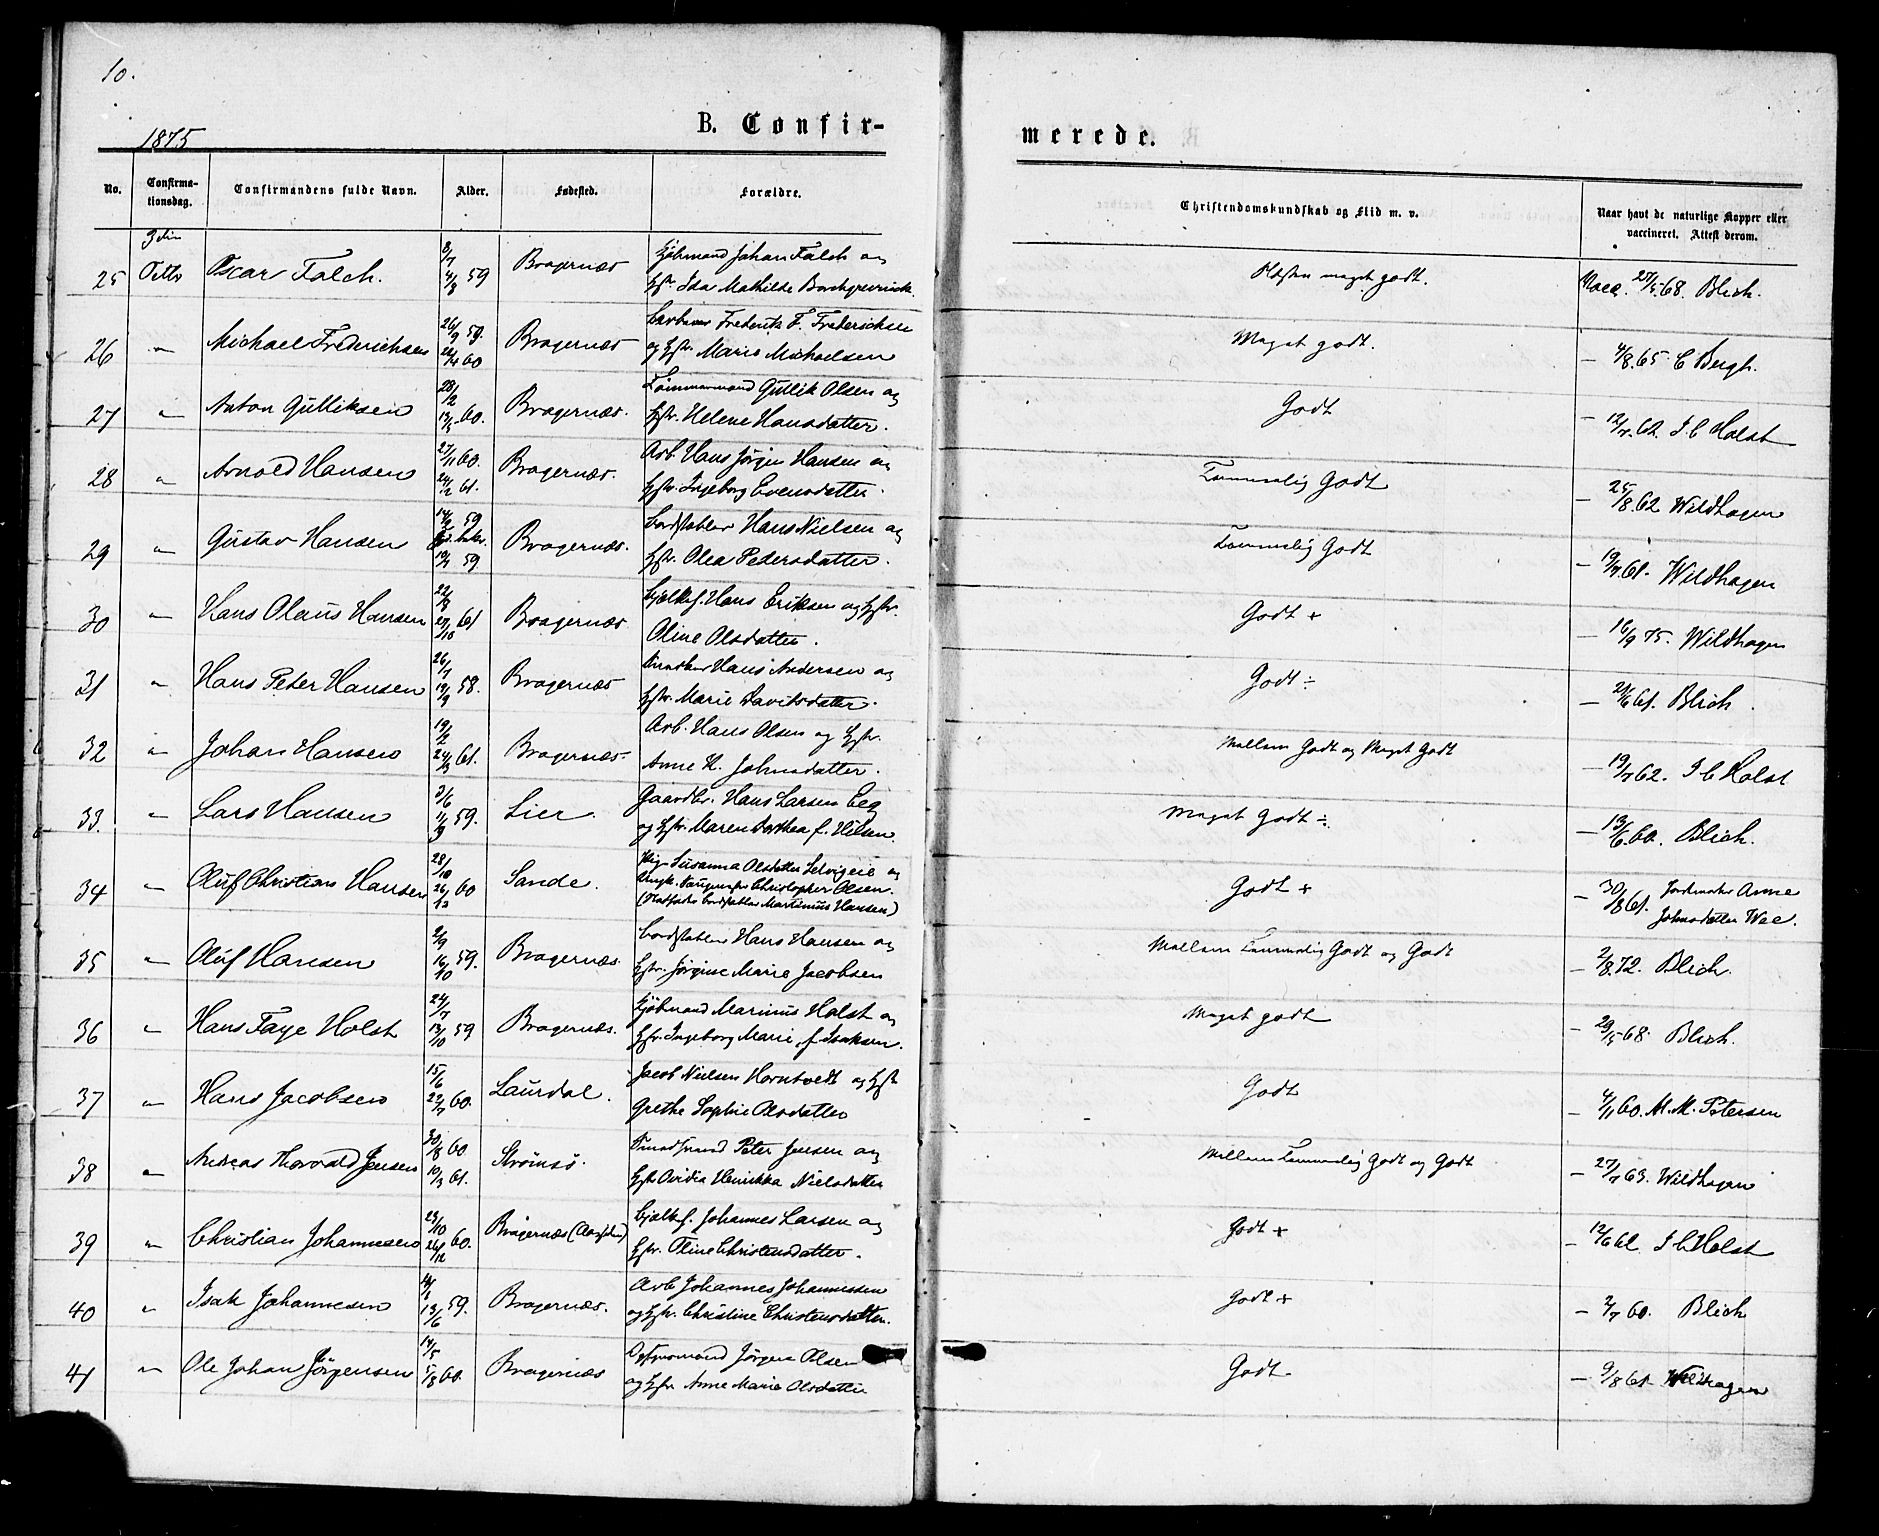 10.
1875
B. Confir-
merede.
No.
Confirma-
tionsdag.
Confirmandens fulde Navn.
Alder.
Fødested.
Forældre.
Christendomskundskab og Flid m. v.
Naar havt de naturlige Kopper eller
vaccineret. Attest derom.
25 3die Octbr Oscar Falch. 8/7 4/8 59 Bragernæs Kjøbmand Johan Falch og
Hstr Ida Mathilde Borchgrevinck. Næsten meget godt. Vacc. 27/5 68. Blich.
26 " Michael Frederichsen 26/9 59. 22/4 60 Bragernæs Frederik F. Frederichsen
og Hstr. Marie Michaelsen Meget godt. — 4/8.65. C Bergh.
27 " Anton Gulliksen 28/2 13/5 60. Bragernæs. Tømmermand Gullik Olsen og
Hstr. Helene Hansdatter. Godt — 12/7.62. J C Holst
28 " Arnold Hansen 27/11 60. 24/2 61. Bragernæs. Arb. Hans Jörgen Hansen og
Hstr. Ingeborg Evensdatter. Temmelig Godt — 25/8.62 Wildhagen
29 " Gustav Hansen 59 59 Bragernæs. Bordstabler Hans Nielsen og
Hstr. Olea Pedersdatter. Temmelig Godt — 19/7.61. Wildhagen
30 " Hans Olaus Hansen 22/8 27/10 61 Bragernæs Bjælkef. Hans Eriksen og Hstr.
Oline Olsdatter. Godt + — 16/9 75. Wildhagen
31 " Hans Peter Hansen 26/7 19/9 58. Bragernæs Hans Andersen og
Hstr. Marie Davidsdatter. Godt ÷ — 21/6 61. Blich.
32 " Johan Hansen 19/2 24/3 61. Bragernæs. Arb. Hans Olsen og Hstr.
Anne K. Johnsdatter. Mellem Godt og Meget Godt — 19/7 62. J C Holst
33. " Lars Hansen 3/6 59. Lier. Gaardbr. Hans Larsen Eeg
og Hstr. Maren Dorthea f. Nilsen. Meget Godt ÷. — 13/6.60. Blich.
34 " Oluf Christian Hansen 28/10 26/12 60 Sande. Pige Susanna Olsdatter Selvigeie og
Ungk. Christopher Olsen.
(Pladsfader Bordstabler Martinius Hansen) Godt + — 30/8 61. Jordmoder Anne
Johnsdatter Wee.
35 " Oluf Hansen 2/9 16/10 59. Bragernæs. Bordstabler Hans Hansen og
Hstr. Jörgine Marie Jacobsen Mellem Temmelig Godt og Godt — 2/8.72. Blich.
36 " Hans Faye Holst 24/7 13/10 59 Bragernæs. Kjøbmand Marinius Holst og
Hstr. Ingeborg Marie f. Isaksen. Meget godt — 29/5 68. Blich.
37 " Hans Jacobsen 15/6 22/7 60. Laurdal. Jacob Nielsen Horntvedt og Hstr
Grethe Sophie Olsdatter Godt — 4/11 60. M. M. Petersen
38 " Andreas Thorvald Jensen 30/8 60. 10/3 61. Strömsö. Peter Jensen og
Hstr Ovidia Henrikka Nielsdatter Mellem Temmelig Godt og Godt — 27/7 63. Wildhagen
39 " Christian Johannesen 23/10 26/12 60. Bragernæs (Aasiden) Bjælkef. Johannes Larsen og
Hstr. Oline Christensdatter. Godt + — 12/6 62. J C Holst
40 " Isak Johannesen 13/6 59. Bragernæs. Arb Johannes Johannessen
og Hstr. Christine Christensdatter. Godt + — 2/7 60. Blich
41 " Ole Johan Jörgensen 14/5 5/8 60. Bragernæs Jörgen Olsen
og Hstr. Anne Marie Olsdatter Godt — 9/8 61. Wildhagen